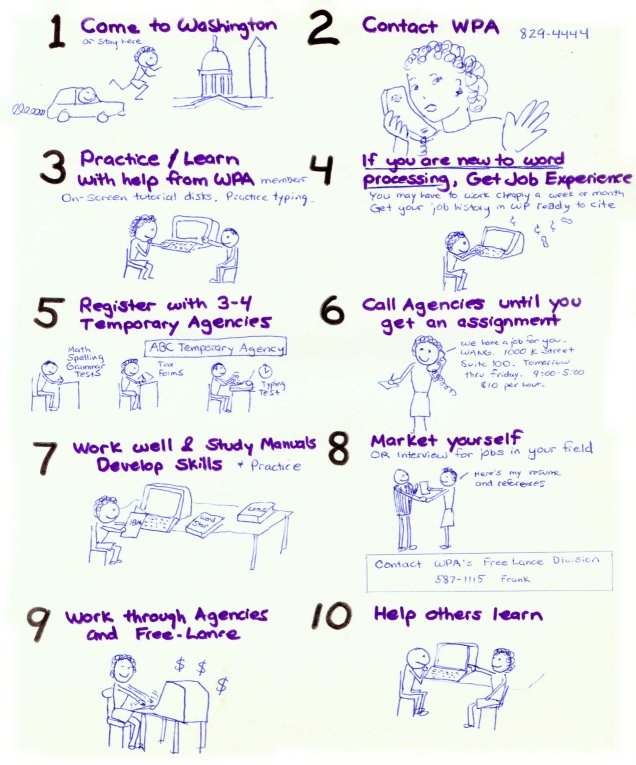 1 Come to Washington
or stay here
2 Contact WPA 829-4444
3 Practice / Learn
with help from WPA members
On-screen tutorial disks. Practice typing.
4 If you are new to word
processing, Get Job Experience
You may have to work cheaply a week or month
Get your job history in WP ready to cite
5 Register with 3-4
Temporary Agencies
ABC Temporary Agency
Math
Spelling
Grammar
Tests
Tax
Forms
Typing
Test
6 Call Agencies until you
get an assignment
We have a job for you.
WANG. 1000 K Street
Suite 100. Tomorrow
thru Friday. 9:00-5:00
$10 per hour.
7 Work well & Study Manuals
Develop Skills + Practice
IBM
Word
Star
Lotus
8 Market yourself
OR Interview for jobs in your field
Here's my resume
and references
Contact WPA's Free Lance Division
387-1115 Frank
9 Work through Agencies
and Free-Lance
$ $ $
10 Help others learn